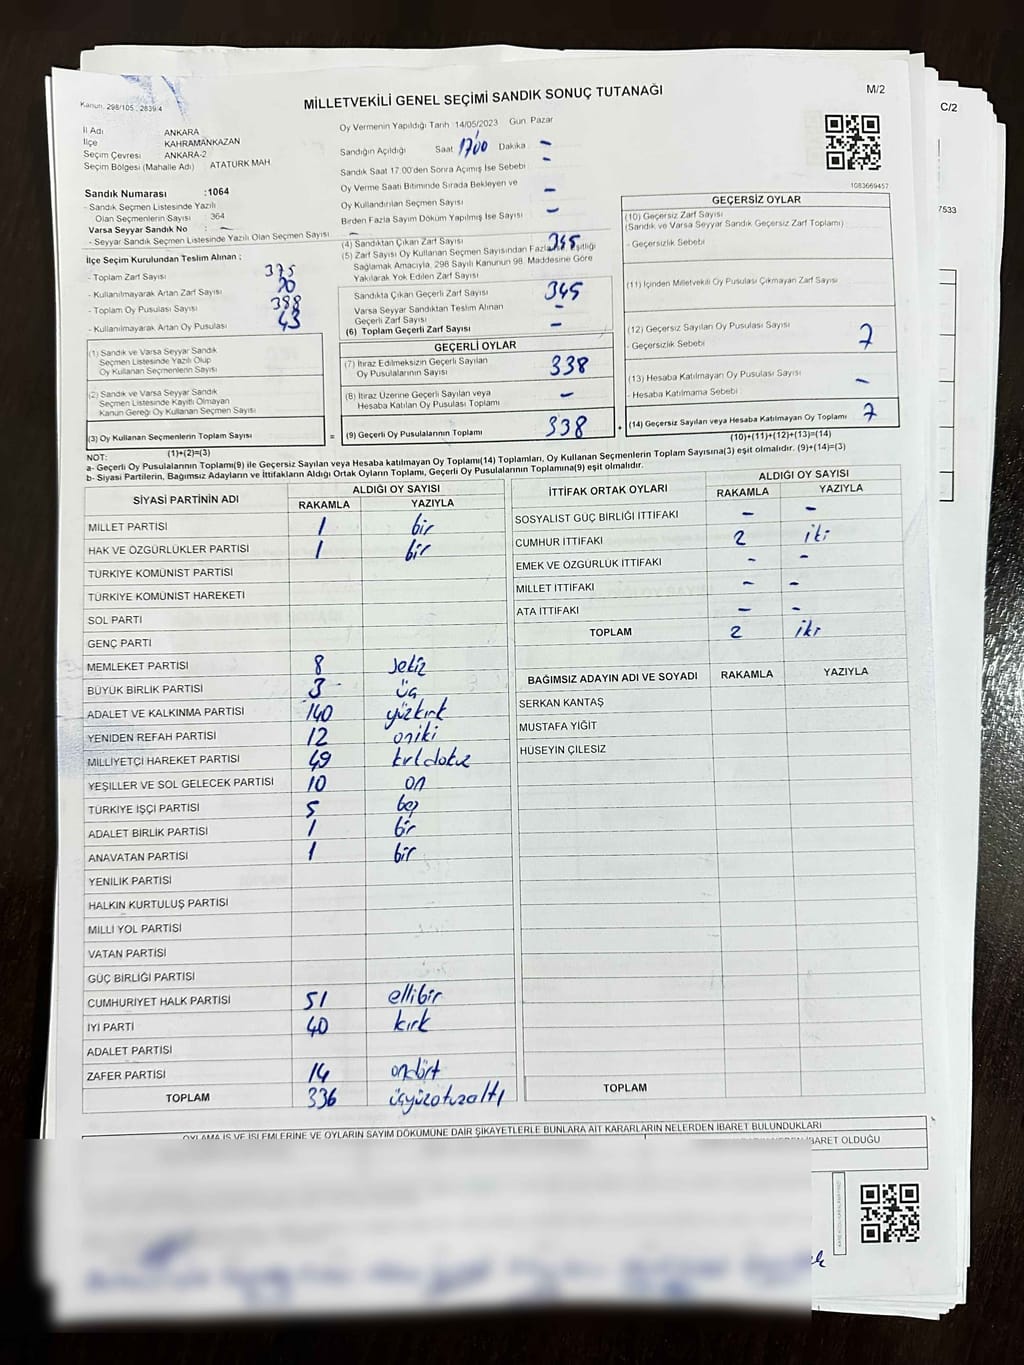 MİLLETVEKİLİ GENEL SEÇİMİ SANDIK SONUÇ TUTANAĞI
M/2
C/2
Kanun: 298/105 , 2839/4
İl Adı ANKARA
İlçe KAHRAMANKAZAN
Seçim Çevresi ANKARA-2
Seçim Bölgesi (Mahalle Adı) ATATÜRK MAH
Oy Vermenin Yapıldığı Tarih 14/05/2023 Gün Pazar
Sandığın Açıldığı Saat 17:00 Dakika -
Sandık Saat 17:00'den Sonra Açılmış İse Sebebi -
Oy Verme Saati Bitiminde Sırada Bekleyen ve
Oy Kullandırılan Seçmen Sayısı -
Birden Fazla Sayım Döküm Yapılmış İse Sayısı -
1083669457
7533
Sandık Numarası :1064
- Sandık Seçmen Listesinde Yazılı
Olan Seçmenlerin Sayısı : 364
Varsa Seyyar Sandık No : -
- Seyyar Sandık Seçmen Listesinde Yazılı Olan Seçmen Sayısı : -
İlçe Seçim Kurulundan Teslim Alınan :
- Toplam Zarf Sayısı 375
- Kullanılmayarak Artan Zarf Sayısı
- Toplam Oy Pusulası Sayısı 388
- Kullanılmayarak Artan Oy Pusulası 43
(1) Sandık ve Varsa Seyyar Sandık
Seçmen Listesinde Yazılı Olup
Oy Kullanan Seçmenlerin Sayısı
(2) Sandık ve Varsa Seyyar Sandık
Seçmen Listesinde Kayıtlı Olmayan
Kanun Gereği Oy Kullanan Seçmen Sayısı
(3) Oy Kullanan Seçmenlerin Toplam Sayısı
(1)+(2)=(3)
(4) Sandıktan Çıkan Zarf Sayısı 345
(5) Zarf Sayısı Oy Kullanan Seçmen Sayısından Fazla Eşitliği
Sağlamak Amacıyla, 298 Sayılı Kanunun 98. Maddesine Göre
Yakılarak Yok Edilen Zarf Sayısı
Sandıkta Çıkan Geçerli Zarf Sayısı 345
Varsa Seyyar Sandıktan Teslim Alınan
Geçerli Zarf Sayısı -
(6) Toplam Geçerli Zarf Sayısı -
GEÇERLİ OYLAR
(7) İtiraz Edilmeksizin Geçerli Sayılan
Oy Pusulalarının Sayısı 338
(8) İtiraz Üzerine Geçerli Sayılan veya
Hesaba Katılan Oy Pusulası Toplamı -
= (9) Geçerli Oy Pusulalarının Toplamı 338 +
GEÇERSİZ OYLAR
(10) Geçersiz Zarf Sayısı
(Sandık ve Varsa Seyyar Sandık Geçersiz Zarf Toplamı)
- Geçersizlik Sebebi
(11) İçinden Milletvekili Oy Pusulası Çıkmayan Zarf Sayısı
(12) Geçersiz Sayılan Oy Pusulası Sayısı 7
- Geçersizlik Sebebi
(13) Hesaba Katılmayan Oy Pusulası Sayısı -
- Hesaba Katılmama Sebebi
(14) Geçersiz Sayılan veya Hesaba Katılmayan Oy Toplamı 7
(10)+(11)+(12)+(13)=(14)
NOT:
a- Geçerli Oy Pusulalarının Toplamı(9) ile Geçersiz Sayılan veya Hesaba katılmayan Oy Toplamı(14) Toplamları, Oy Kullanan Seçmenlerin Toplam Sayısına(3) eşit olmalıdır. (9)+(14)=(3)
b- Siyasi Partilerin, Bağımsız Adayların ve İttifakların Aldığı Ortak Oyların Toplamı, Geçerli Oy Pusulalarının Toplamına(9) eşit olmalıdır.
SİYASİ PARTİNİN ADI ALDIĞI OY SAYISI
RAKAMLA YAZIYLA
MİLLET PARTİSİ 1 bir
HAK VE ÖZGÜRLÜKLER PARTİSİ 1 bir
TÜRKİYE KOMÜNİST PARTİSİ
TÜRKİYE KOMÜNİST HAREKETİ
SOL PARTİ
GENÇ PARTİ
MEMLEKET PARTİSİ 8 sekiz
BÜYÜK BİRLİK PARTİSİ 3 üç
ADALET VE KALKINMA PARTİSİ 140 yüzkırk
YENİDEN REFAH PARTİSİ 12 oniki
MİLLİYETÇİ HAREKET PARTİSİ 49 kırkdokuz
YEŞİLLER VE SOL GELECEK PARTİSİ 10 on
TÜRKİYE İŞÇİ PARTİSİ 5 beş
ADALET BİRLİK PARTİSİ 1 bir
ANAVATAN PARTİSİ 1 bir
YENİLİK PARTİSİ
HALKIN KURTULUŞ PARTİSİ
MİLLİ YOL PARTİSİ
VATAN PARTİSİ
GÜÇ BİRLİĞİ PARTİSİ
CUMHURİYET HALK PARTİSİ 51 ellibir
İYİ PARTİ 40 kırk
ADALET PARTİSİ
ZAFER PARTİSİ 14 ondört
TOPLAM 336 üçyüzotuzaltı
İTTİFAK ORTAK OYLARI ALDIĞI OY SAYISI
RAKAMLA YAZIYLA
SOSYALİST GÜÇ BİRLİĞİ İTTİFAKI - -
CUMHUR İTTİFAKI 2 iki
EMEK VE ÖZGÜRLÜK İTTİFAKI - -
MİLLET İTTİFAKI - -
ATA İTTİFAKI - -
TOPLAM 2 iki
BAĞIMSIZ ADAYIN ADI VE SOYADI RAKAMLA YAZIYLA
SERKAN KANTAŞ
MUSTAFA YİĞİT
HÜSEYİN ÇİLESİZ
TOPLAM
OYLAMA İŞ VE İŞLEMLERİNE VE OYLARIN SAYIM DÖKÜMÜNE DAİR ŞİKAYETLERLE BUNLARA AİT KARARLARIN NELERDEN İBARET BULUNDUKLARI
İBARET OLDUĞU